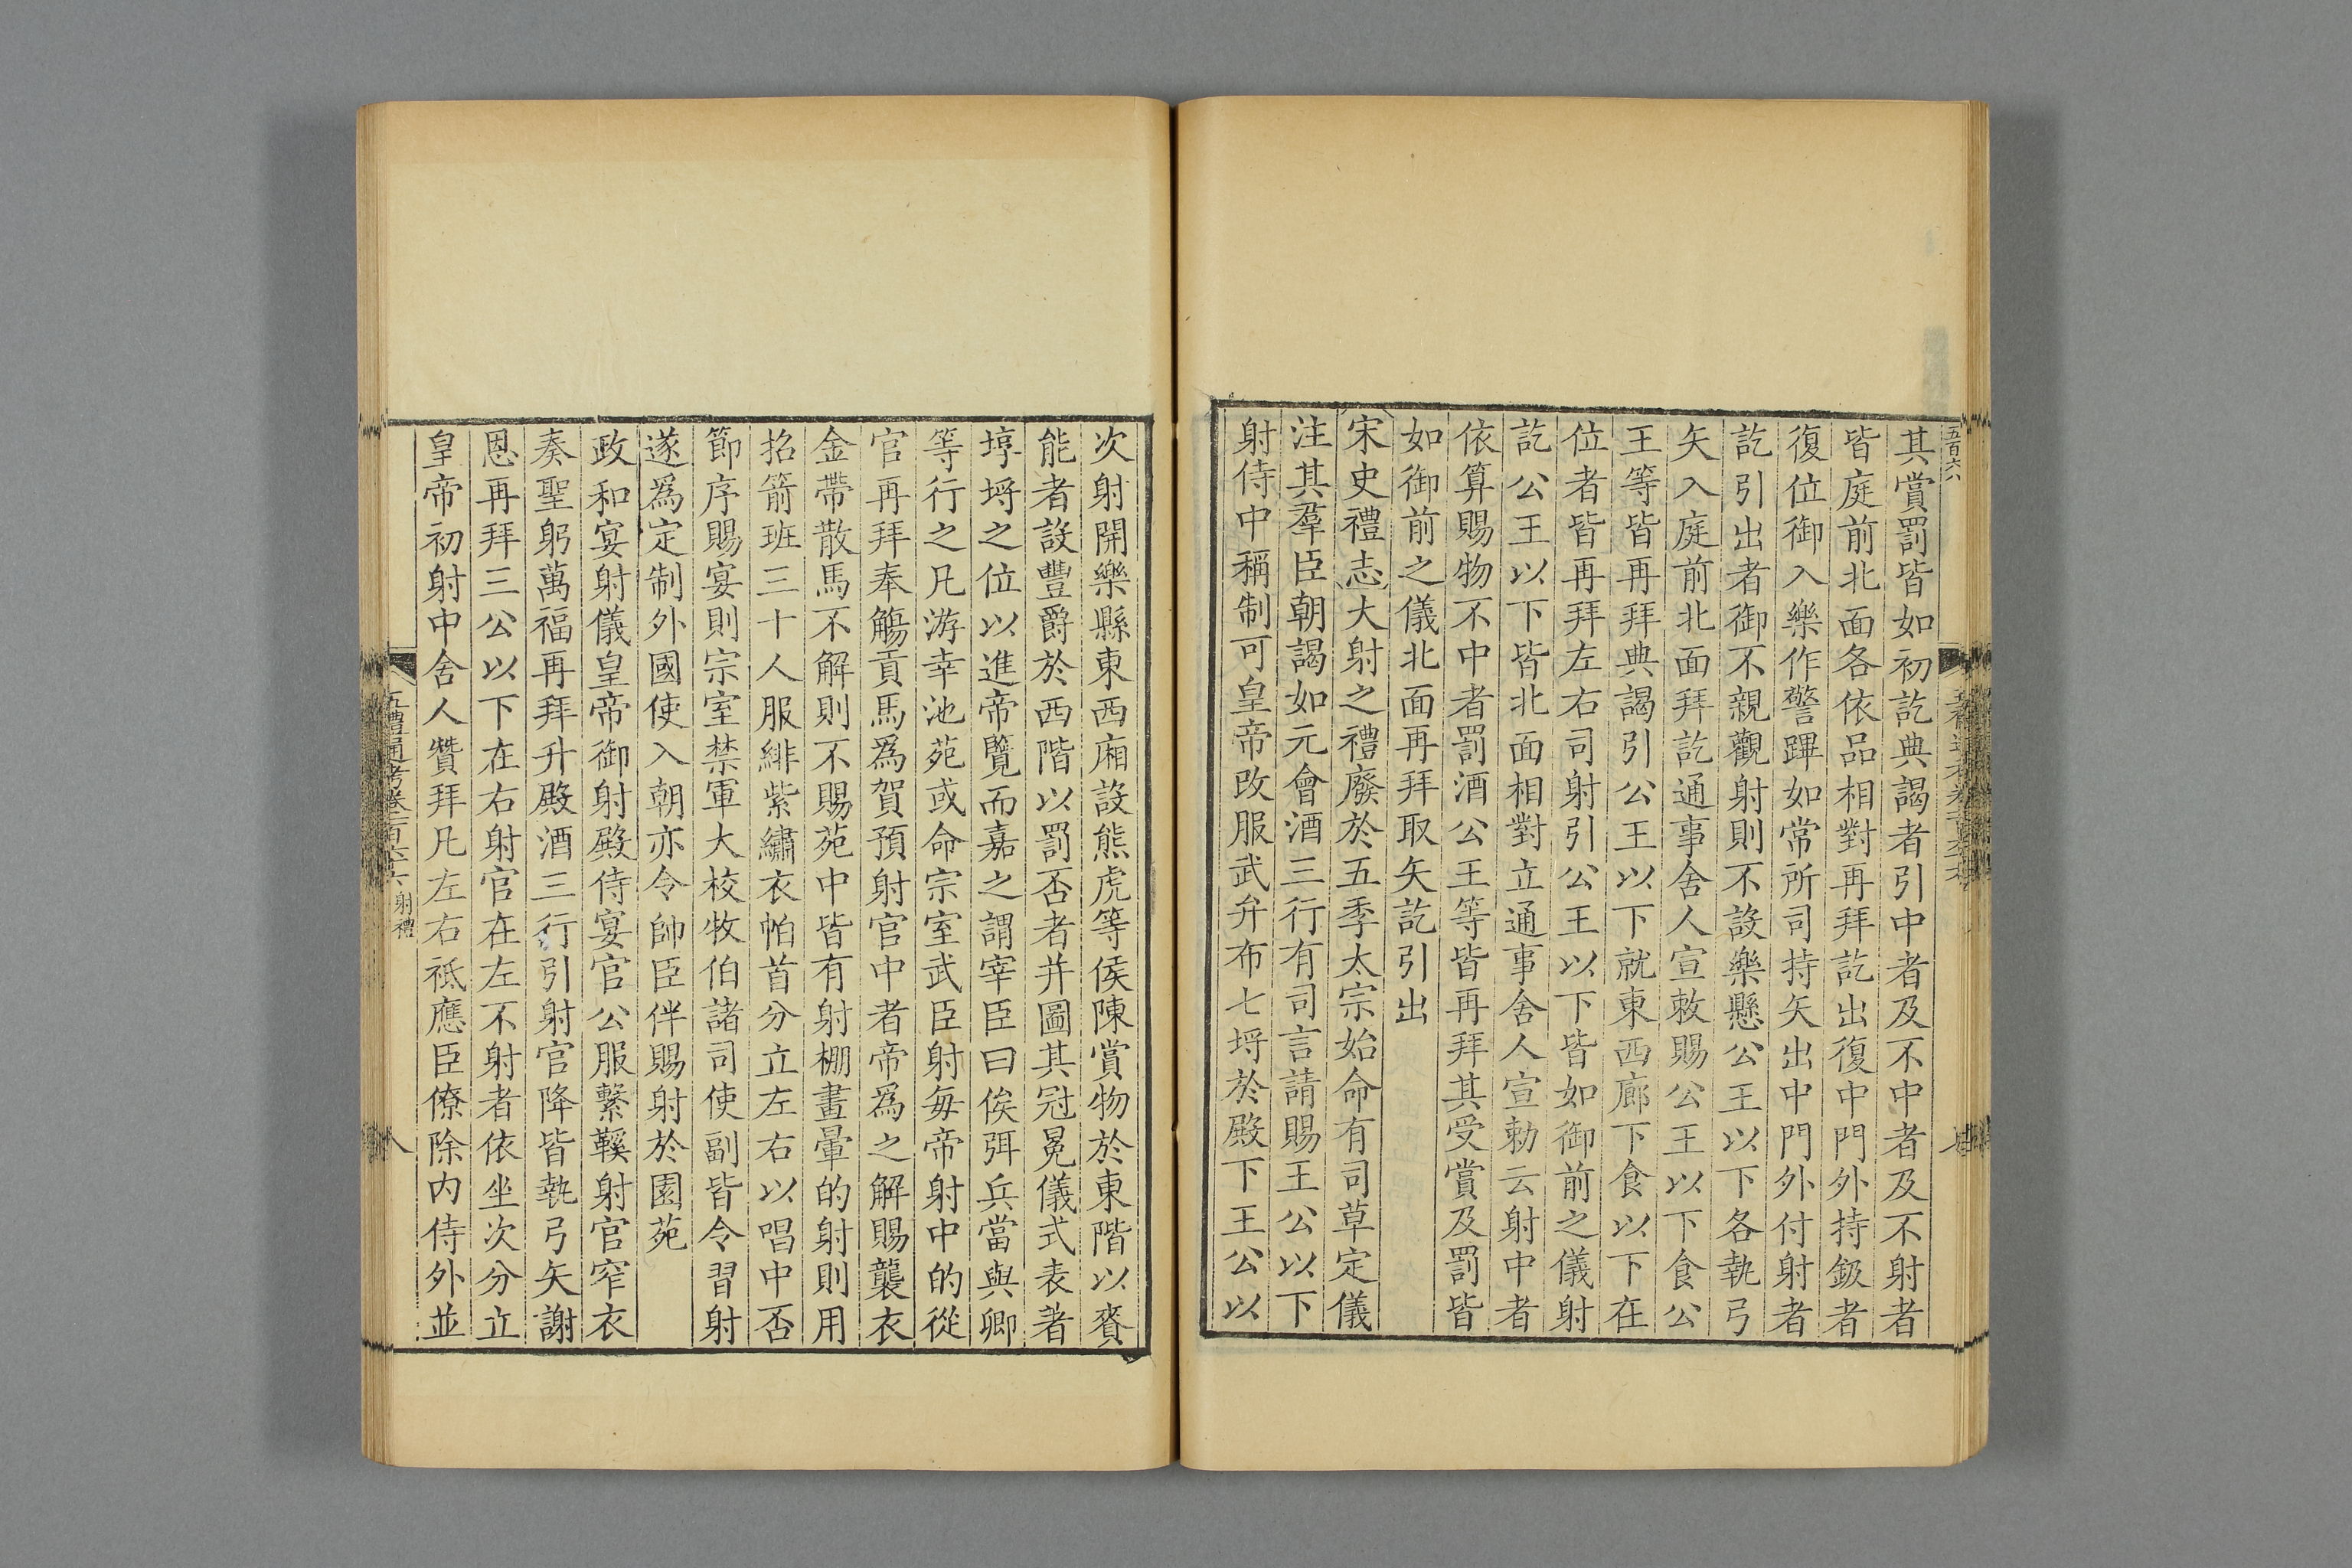 五百六八
其賞罰皆如初訖典謁者引中者及不中者及不射者
皆庭前北面各依品相對再拜訖出復中門外持鈒者
復位御入樂作警蹕如常所司持矢出中門外付射者
訖引出者御不親觀射則不設樂懸公王以下各執弓
矢入庭前北面拜訖通事舍人宣敕賜公王以下食公
王等皆再拜典謁引公王以下就東西廊下食以下在
位者皆再拜左右司射引公王以下皆如御前之儀射
訖公王以下皆北面相對立通事舍人宣勅云射中者
依算賜物不中者罰酒公王等皆再拜其受賞及罰皆
如御前之儀北面再拜取矢訖引出
宋史禮志大射之禮廢於五季太宗始命有司草定儀
注其羣臣朝謁如元會酒三行有司言請賜王公以下
射侍中稱制可皇帝改服武弁布七埓於殿下王公以
次射開樂縣東西廂設熊虎等侯陳賞物於東階以賚
能者設豐爵於西階以罰否者并圖其冠冕儀式表著
埻埓之位以進帝覽而嘉之謂宰臣曰俟弭兵當與卿
等行之凡游幸池苑或命宗室武臣射每帝射中的從
官再拜奉觴貢馬爲賀預射官中者帝爲之解賜襲衣
金帶散馬不解則不賜苑中皆有射棚畫暈的射則用
招箭班三十人服緋紫繡衣帕首分立左右以唱中否
節序賜宴則宗室禁軍大校牧伯諸司使副皆令習射
遂爲定制外國使入朝亦令帥臣伴賜射於園苑
政和宴射儀皇帝御射殿侍宴官公服繫鞵射官窄衣
奏聖躬萬福再拜升殿酒三行引射官降皆執弓矢謝
恩再拜三公以下在右射官在左不射者依坐次分立
皇帝初射中舍人贊拜凡左右祗應臣僚除内侍外並
五禮通考卷一百六十六 射禮
八